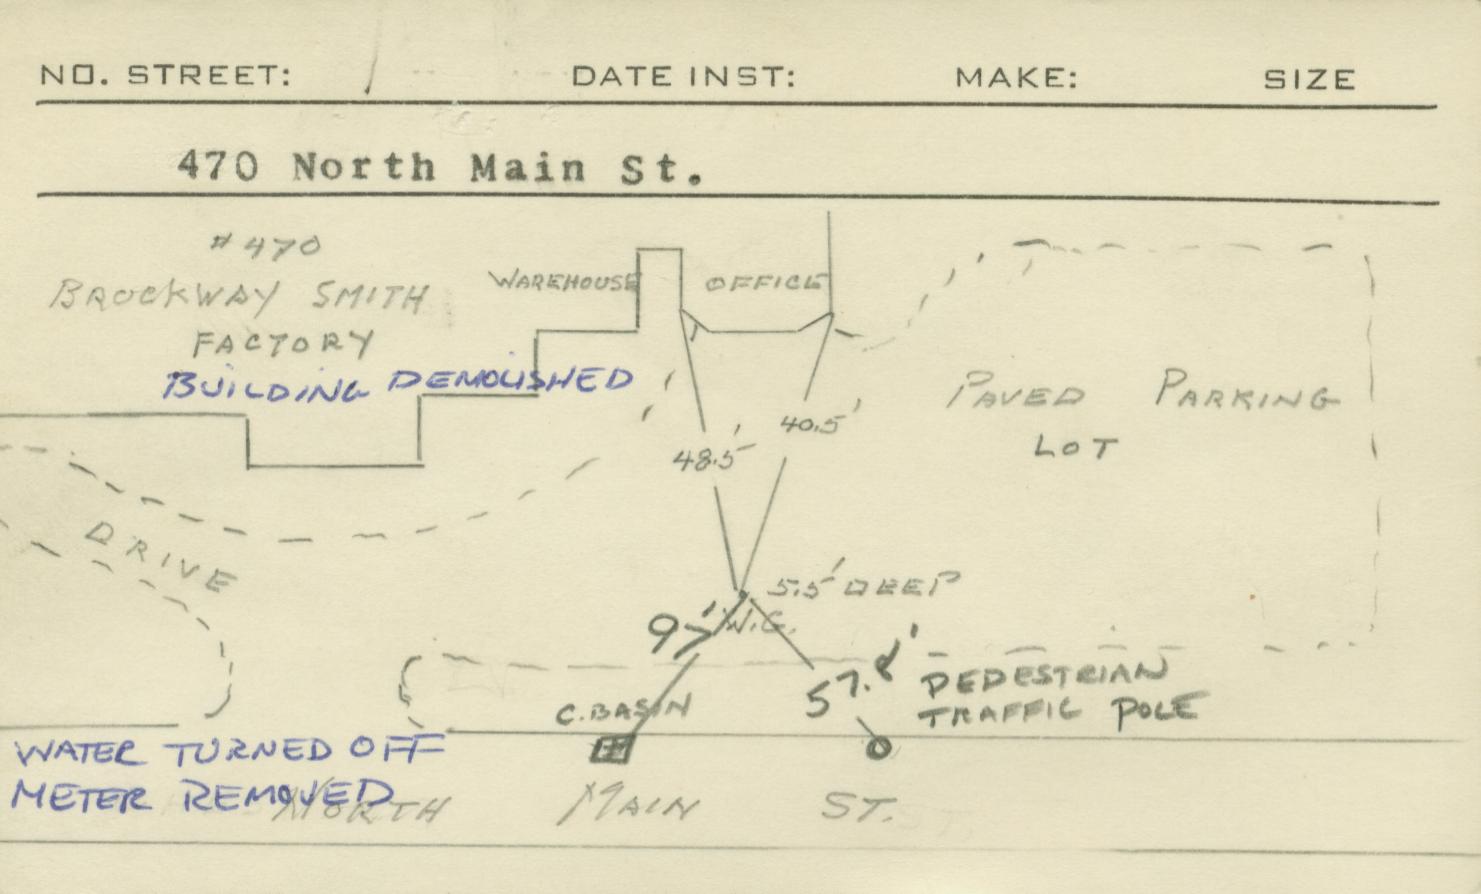 NO. STREET: DATE INST: MAKE: SIZE
470 North Main St.
# 470
BROCKWAY SMITH
FACTORY
BUILDING DEMOLISHED
WAREHOUSE
OFFICE
PAVED PARKING
LOT
48.5'
40.5'
DRIVE
5.5' DEEP
W.G.
97'
57.8'
PEDESTRIAN
TRAFFIC POLE
C. BASIN
WATER TURNED OFF
METER REMOVED
NORTH MAIN ST.